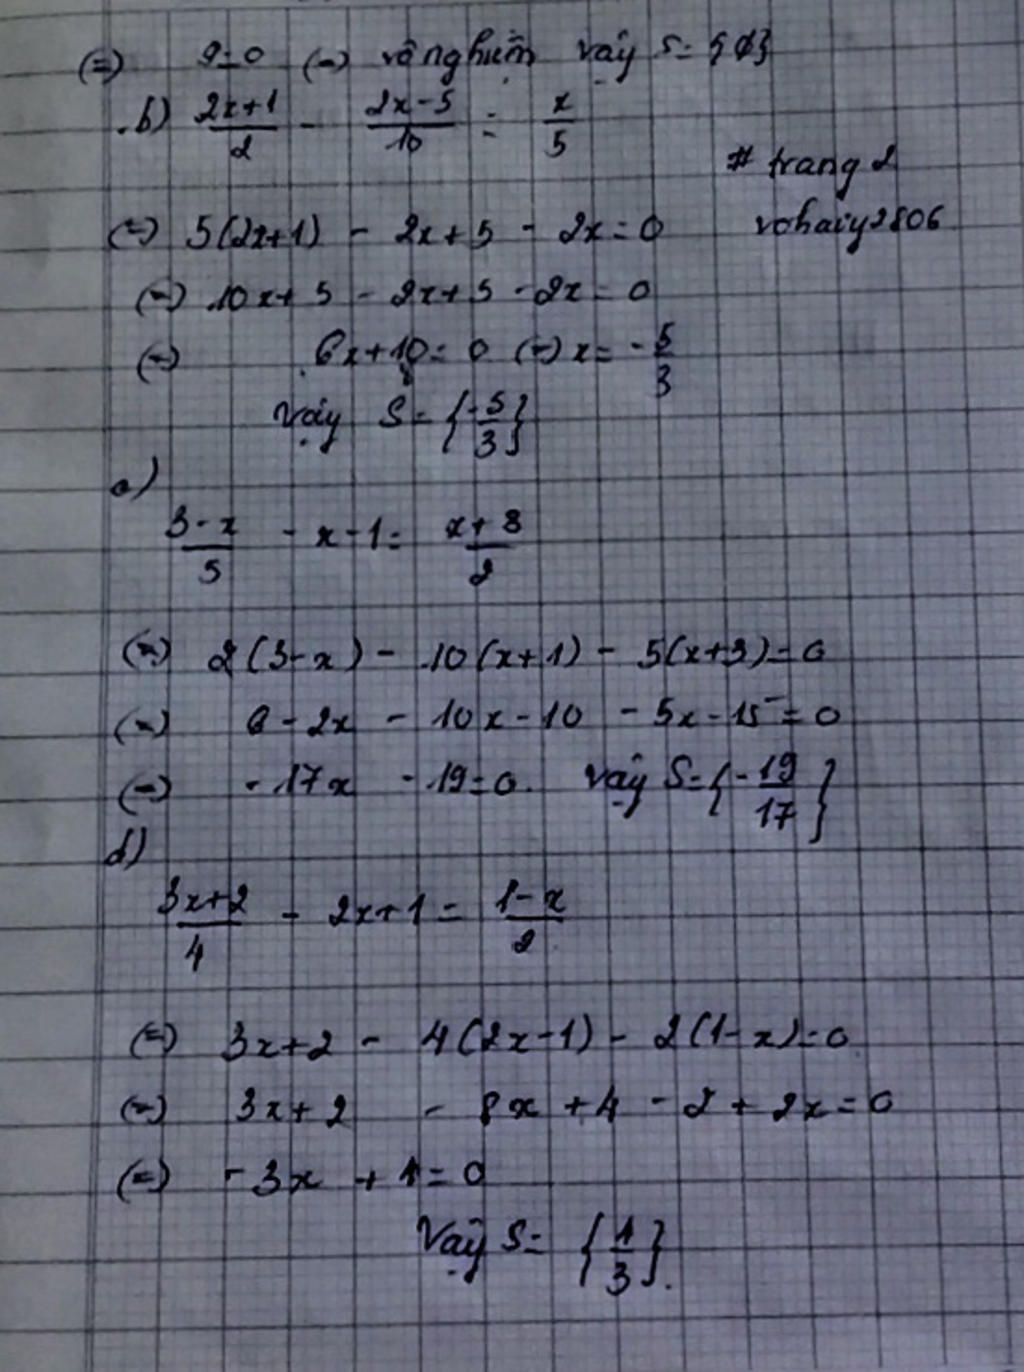 (=) 9=0 (=) vô nghiệm vậy S={∅}
b) \frac{2x+1}{2} - \frac{2x-5}{10} = \frac{x}{5}
# trang 2
vohaiy2806
(=) 5(2x+1) - 2x+5 - 2x=0
(=) 10x+5 - 2x+5 - 2x=0
(=) 6x+10=0 (=) x= -\frac{5}{3}
Vậy S={-\frac{5}{3}}
c)
\frac{3-x}{5} - x-1= \frac{x+3}{2}
(=) 2(3-x) - 10(x+1) - 5(x+3)=0
(=) 6-2x - 10x-10 - 5x-15=0
(=) -17x -19=0. Vậy S={-\frac{19}{17}}
d)
\frac{3x+2}{4} - 2x+1= \frac{1-x}{2}
(=) 3x+2 - 4(2x-1) - 2(1-x)=0
(=) 3x+2 - 8x +4 -2 + 2x=0
(=) -3x +4=0
Vậy S= {\frac{1}{3}}.